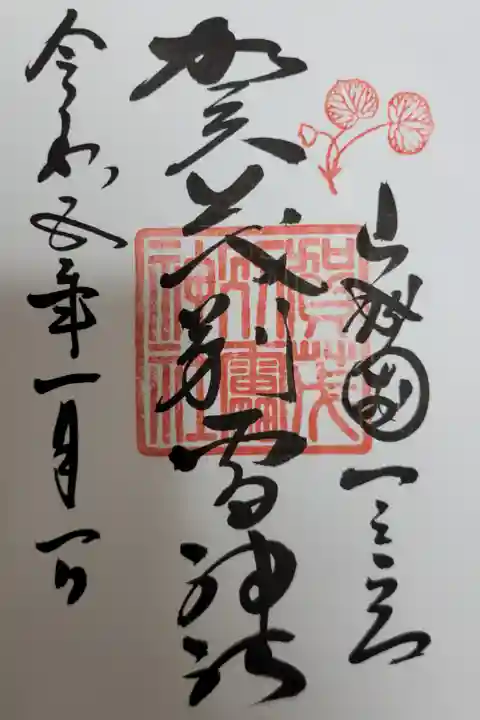 山城国一之宮
賀茂別雷神社
令和五年一月一日
賀茂
別雷
神社